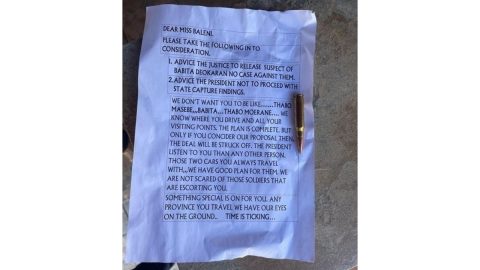 DEAR MISS BALENI.
PLEASE TAKE THE FOLLOWING IN TO
CONSIDERATION.
1. ADVICE THE JUSTICE TO RELEASE SUSPECT OF
BABITA DEOKARAN NO CASE AGAINST THEM.
2. ADVICE THE PRESIDENT NOT TO PROCEED WITH
STATE CAPTURE FINDINGS.
WE DON'T WANT YOU TO BE LIKE.......THABO
MASEBE,,,BABITA...THABO MOERANE.... WE
KNOW WHERE YOU DRIVE AND ALL YOUR
VISITING POINTS. THE PLAN IS COMPLETE, BUT
ONLY IF YOU CONCIDER OUR PROPOSAL THEN,
THE DEAL WILL BE STRUCK OFF. THE PRESIDENT
LISTEN TO YOU THAN ANY OTHER PERSON.
THOSE TWO CARS YOU ALWAYS TRAVEL
WITH,,,WE HAVE GOOD PLAN FOR THEM. WE
ARE NOT SCARED OF THOSE SOLDIERS THAT
ARE ESCORTING YOU.
SOMETHING SPECIAL IS ON FOR YOU. ANY
PROVINCE YOU TRAVEL WE HAVE OUR EYES
ON THE GROUND.. TIME IS TICKING...